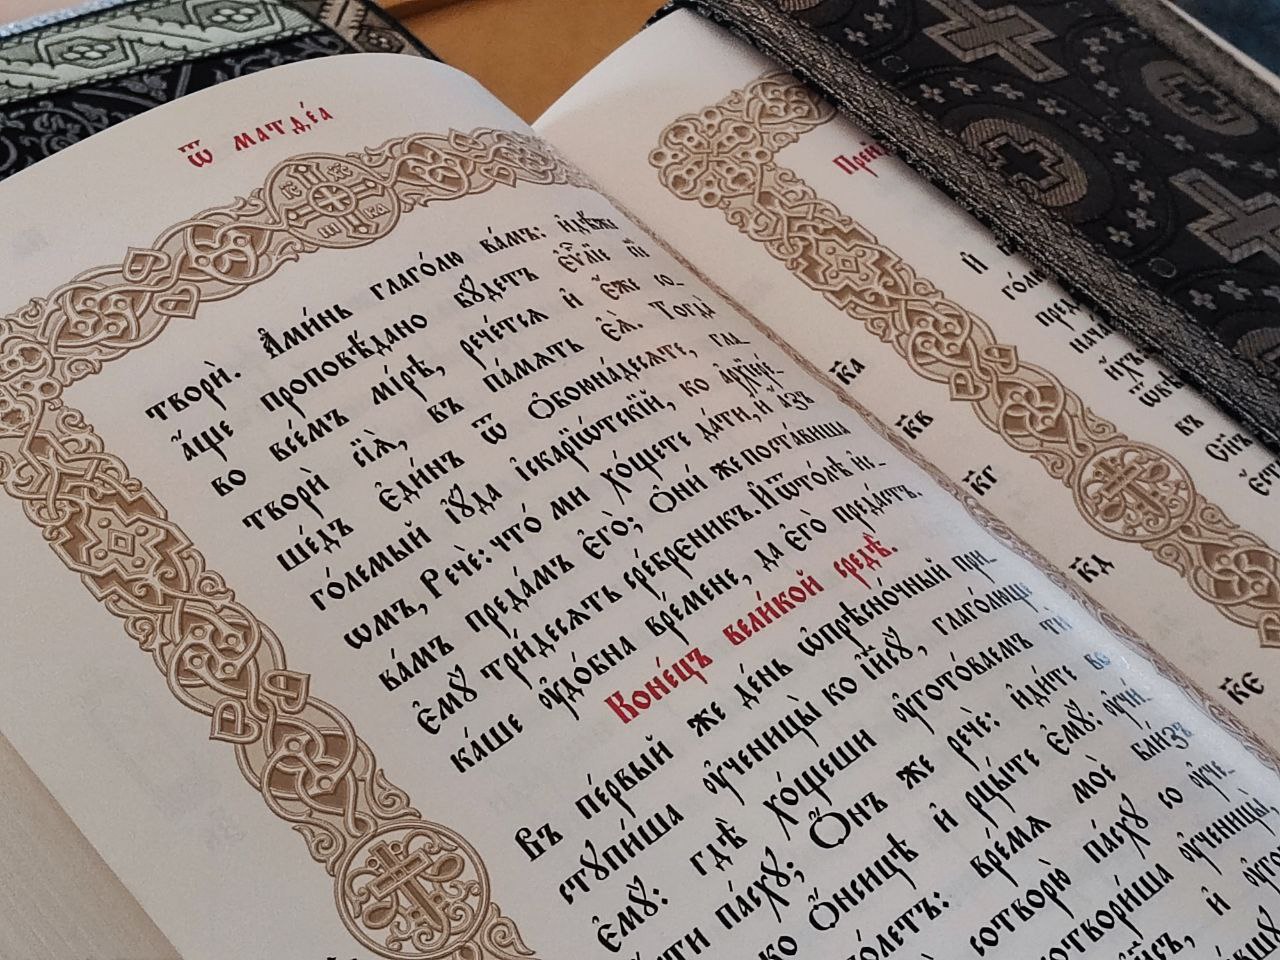 Ѿ матѳе́а
творѝ. А҆ми́нь глаго́лю ва́мъ: и҆дѣ́же
а҆́ще проповѣ́дано бꙋ́детъ є҆ѵⷢ҇лїе сїѐ
во все́мъ мі́рѣ, рече́тсѧ и҆ є҆́же со-
творѝ сїѧ̀, въ па́мѧть є҆ѧ̀. Тогда̀
ше́дъ є҆ди́нъ ѿ ѻ҆боюна́десѧте, гла-
го́лемый і҆ꙋ́да і҆скарїѡ́тскїй, ко а҆рхїере́-
ѡмъ, Речѐ: что́ ми хо́щете да́ти, и҆ а҆́зъ
ва́мъ преда́мъ є҆го̀; Ѻ҆ни́ же поста́виша
є҆мꙋ̀ три́десѧть сре́бреникъ. И҆ ѿто́лѣ и҆-
ка́ше ᲂу҆до́бна вре́мене, да є҆го̀ преда́стъ.
Коне́цъ вели́кой средѣ̀.
Въ пе́рвый же де́нь ѡ҆прѣсно́чный при-
стꙋпи́ша ᲂу҆ченицы̀ ко і҆и҃сꙋ, глаго́люще
є҆мꙋ̀: гдѣ̀ хо́щеши ᲂу҆гото́ваемъ тѝ
ꙗ҆́сти па́схꙋ; Ѻ҆́нъ же речѐ: и҆ди́те во
ко ѻ҆́нсицѣ и҆ рцы́те є҆мꙋ̀: ᲂу҆чи́-
глаго́летъ: вре́мѧ моѐ бли́зъ
сотворю̀ па́схꙋ со ᲂу҆че-
сотвори́ша ᲂу҆ченицы̀,
и҆
к҃а
к҃в
к҃г
к҃д
к҃є
И҆
въ